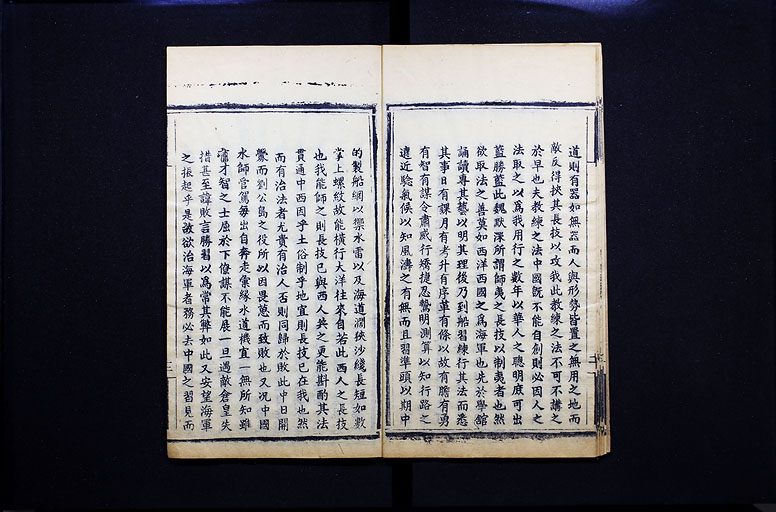 道則有器如無器而人與形勢皆置之無用之地而
敵反得挾其長技以攻我此教練之法不可不講之
於早也夫教練之法中國既不能自創則必因人之
法取之以為我用行之數年以華人之聰明庶可出
藍勝藍此魏默深所謂師夷之長技以制夷者也然
欲取法之善莫如西洋西國之為海軍也先於學館
誦讀專其藝以明其理後乃到船習練行其法而悉
其事日有課月有考升有序革有條以故有膽有勇
有智有謀令肅威行矯捷忍鷙明測算以知行路之
遠近騐氣候以知風濤之有無而且習準頭以期中
的製船網以禦水雷以及海道濶狹沙綫長短如數
掌上螺紋故能橫行大洋往來自若此西人之長技
也我能師之則長技已與西人共之更能斟酌其法
貫通中西因乎土俗制乎地宜則長技已在我也然
而有治法者尤貴有治人否則同歸於敗此中日開
釁而劉公島之役所以因畏葸而致敗也又况中國
水師官駕每出自奔走夤緣水道機宜一無所知雖
有才智之士屈於下僚謀不能展一旦遇敵倉皇失
措甚至諱敗言勝習以為常其弊如此又安望海軍
之振起乎是故欲治海軍者務必去中國之習見而
二
三